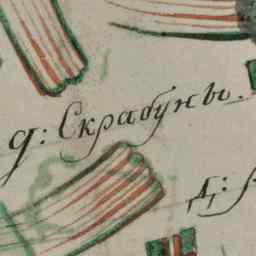 д: Скрабуны.
Д: